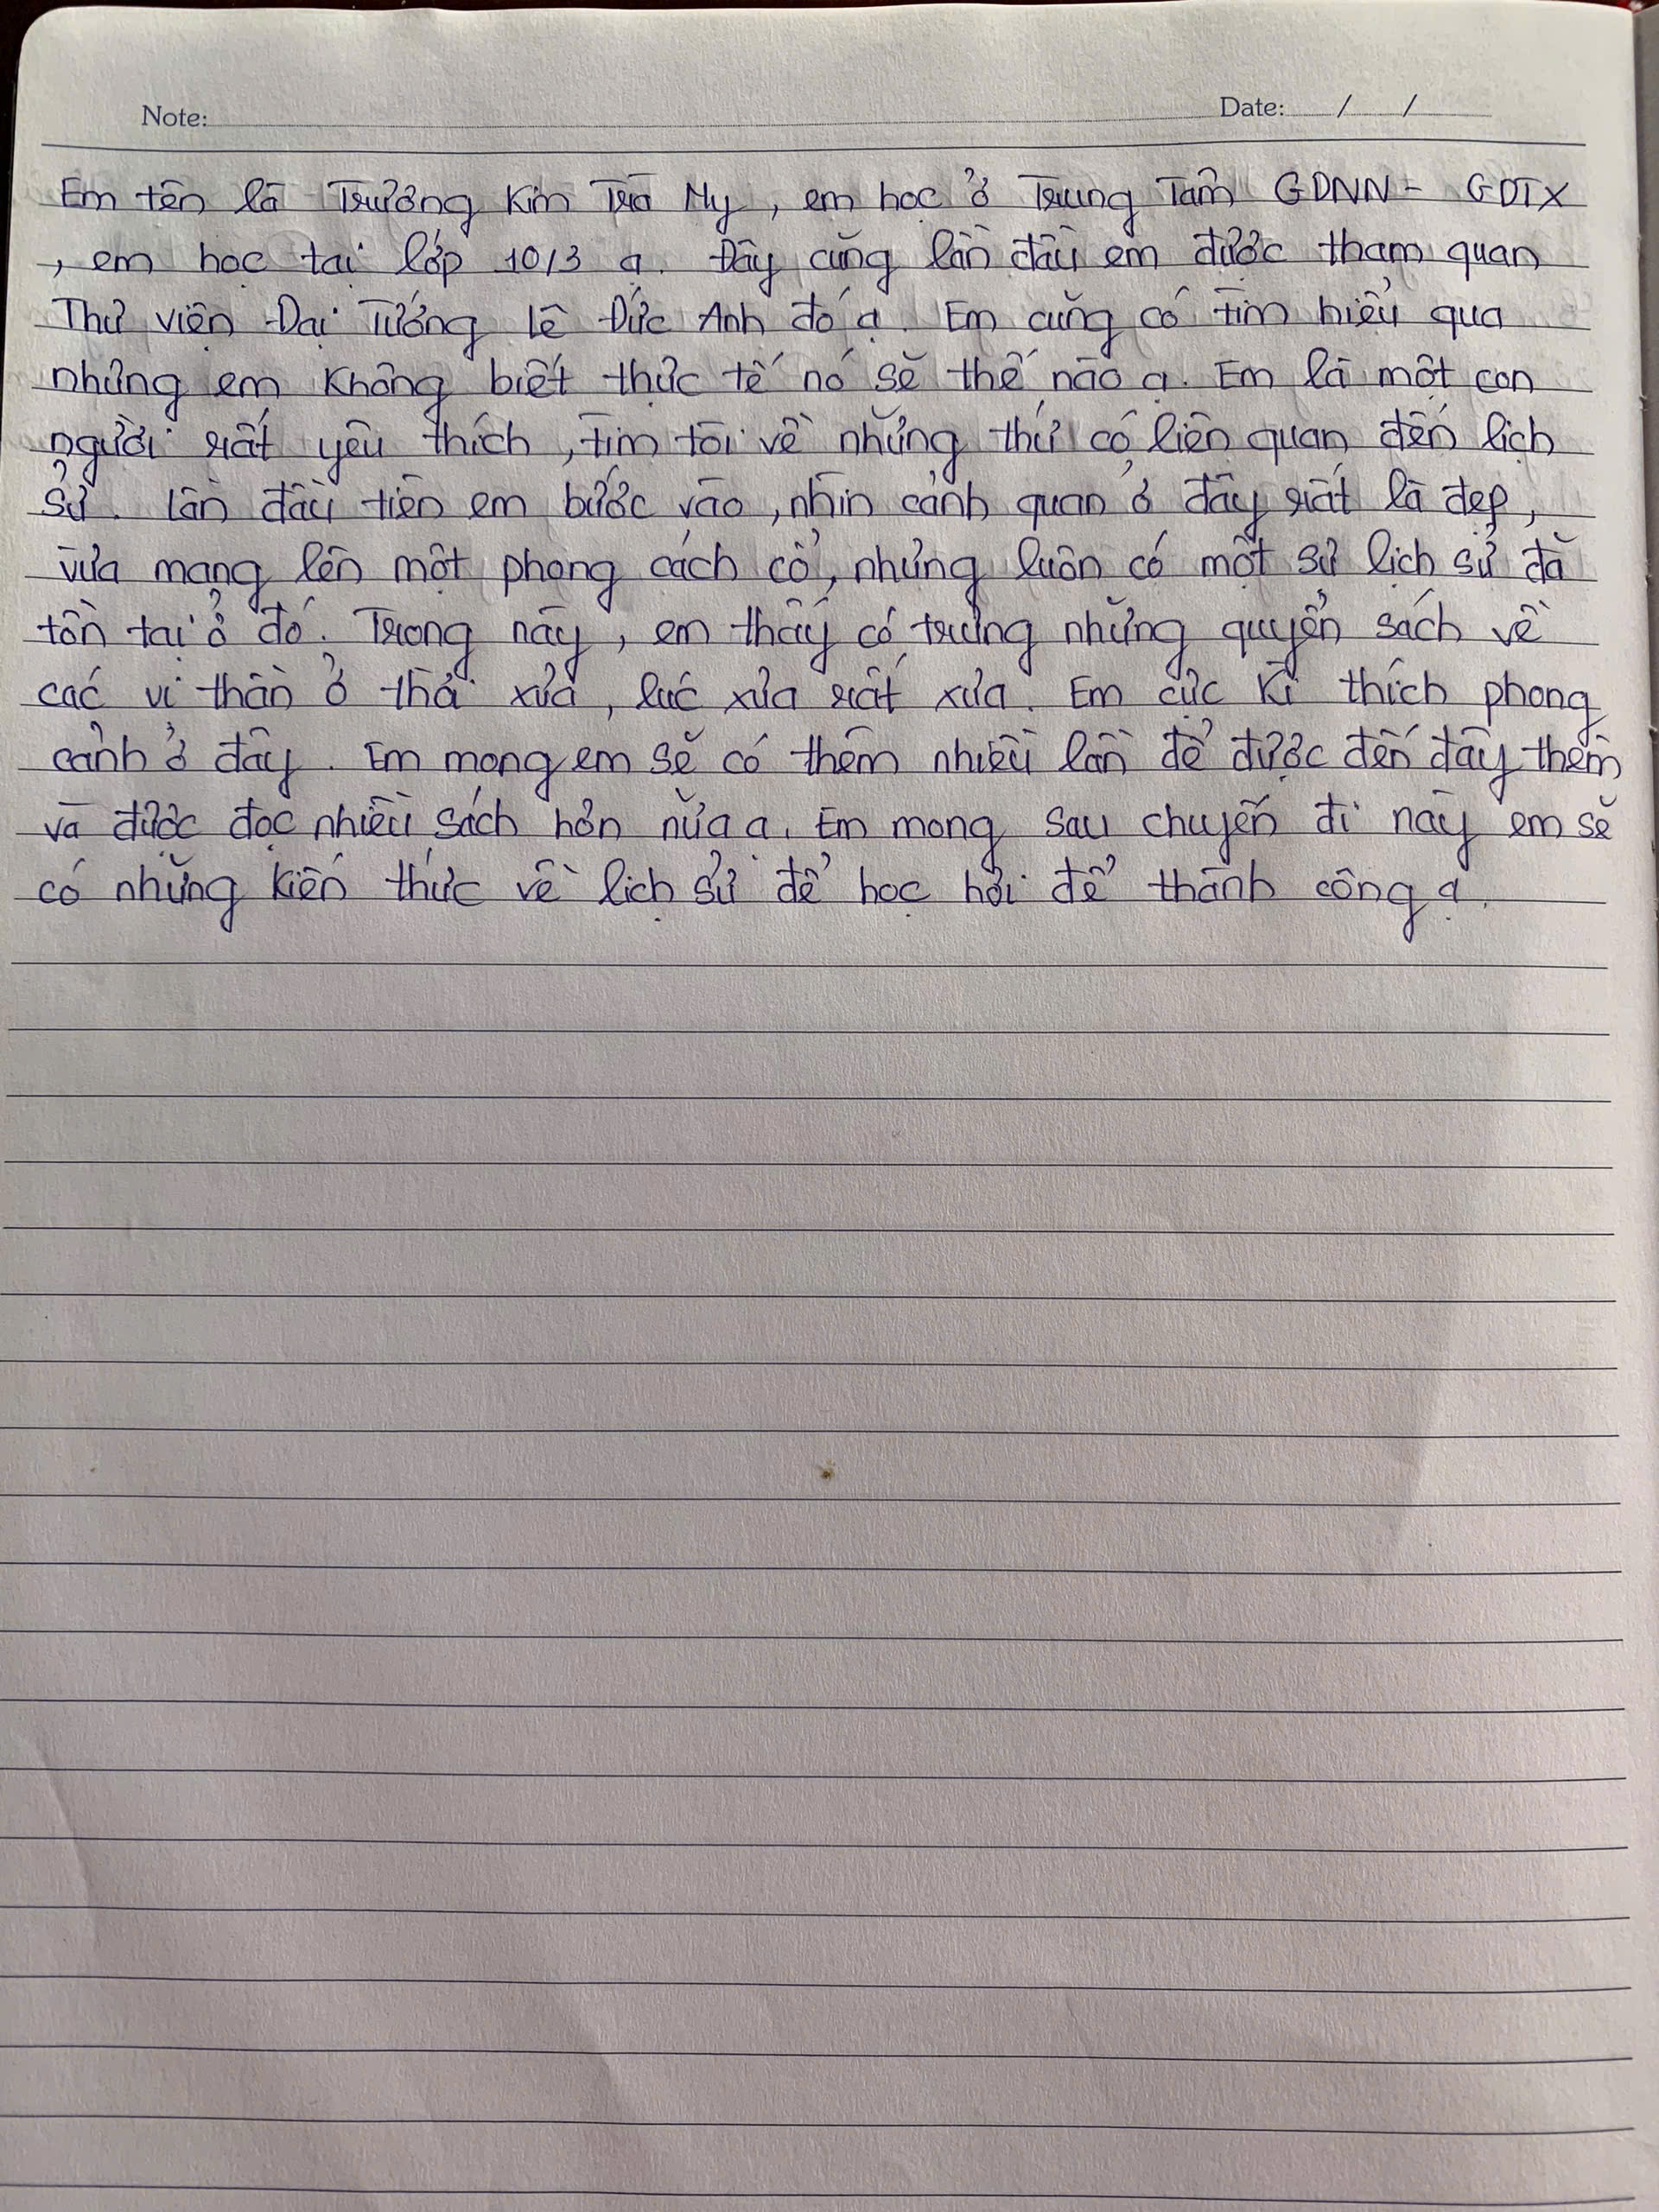 Note: Date: / /
Em tên là Trương Kim Trà My, em học ở Trung Tâm GDNN - GDTX
, em học tại lớp 10/3 ạ. Đây cũng lần đầu em được tham quan
Thư viện Đại Tướng Lê Đức Anh đó ạ. Em cũng có tìm hiểu qua
nhưng em không biết thực tế nó sẽ thế nào ạ. Em là một con
người rất yêu thích, tìm tòi về những thứ có liên quan đến lịch
sử. Lần đầu tiên em bước vào, nhìn cảnh quan ở đây rất là đẹp,
vừa mang lên một phong cách cổ, nhưng luôn có một sử lịch sử đã
tồn tại ở đó. Trong này, em thấy có trưng những quyển sách về
các vị thần ở thời xưa, lúc xưa rất xưa. Em cực kì thích phong
cảnh ở đây. Em mong em sẽ có thêm nhiều lần để được đến đây thêm
và được đọc nhiều sách hơn nữa ạ. Em mong sau chuyến đi này em sẽ
có những kiến thức về lịch sử để học hỏi để thành công ạ.